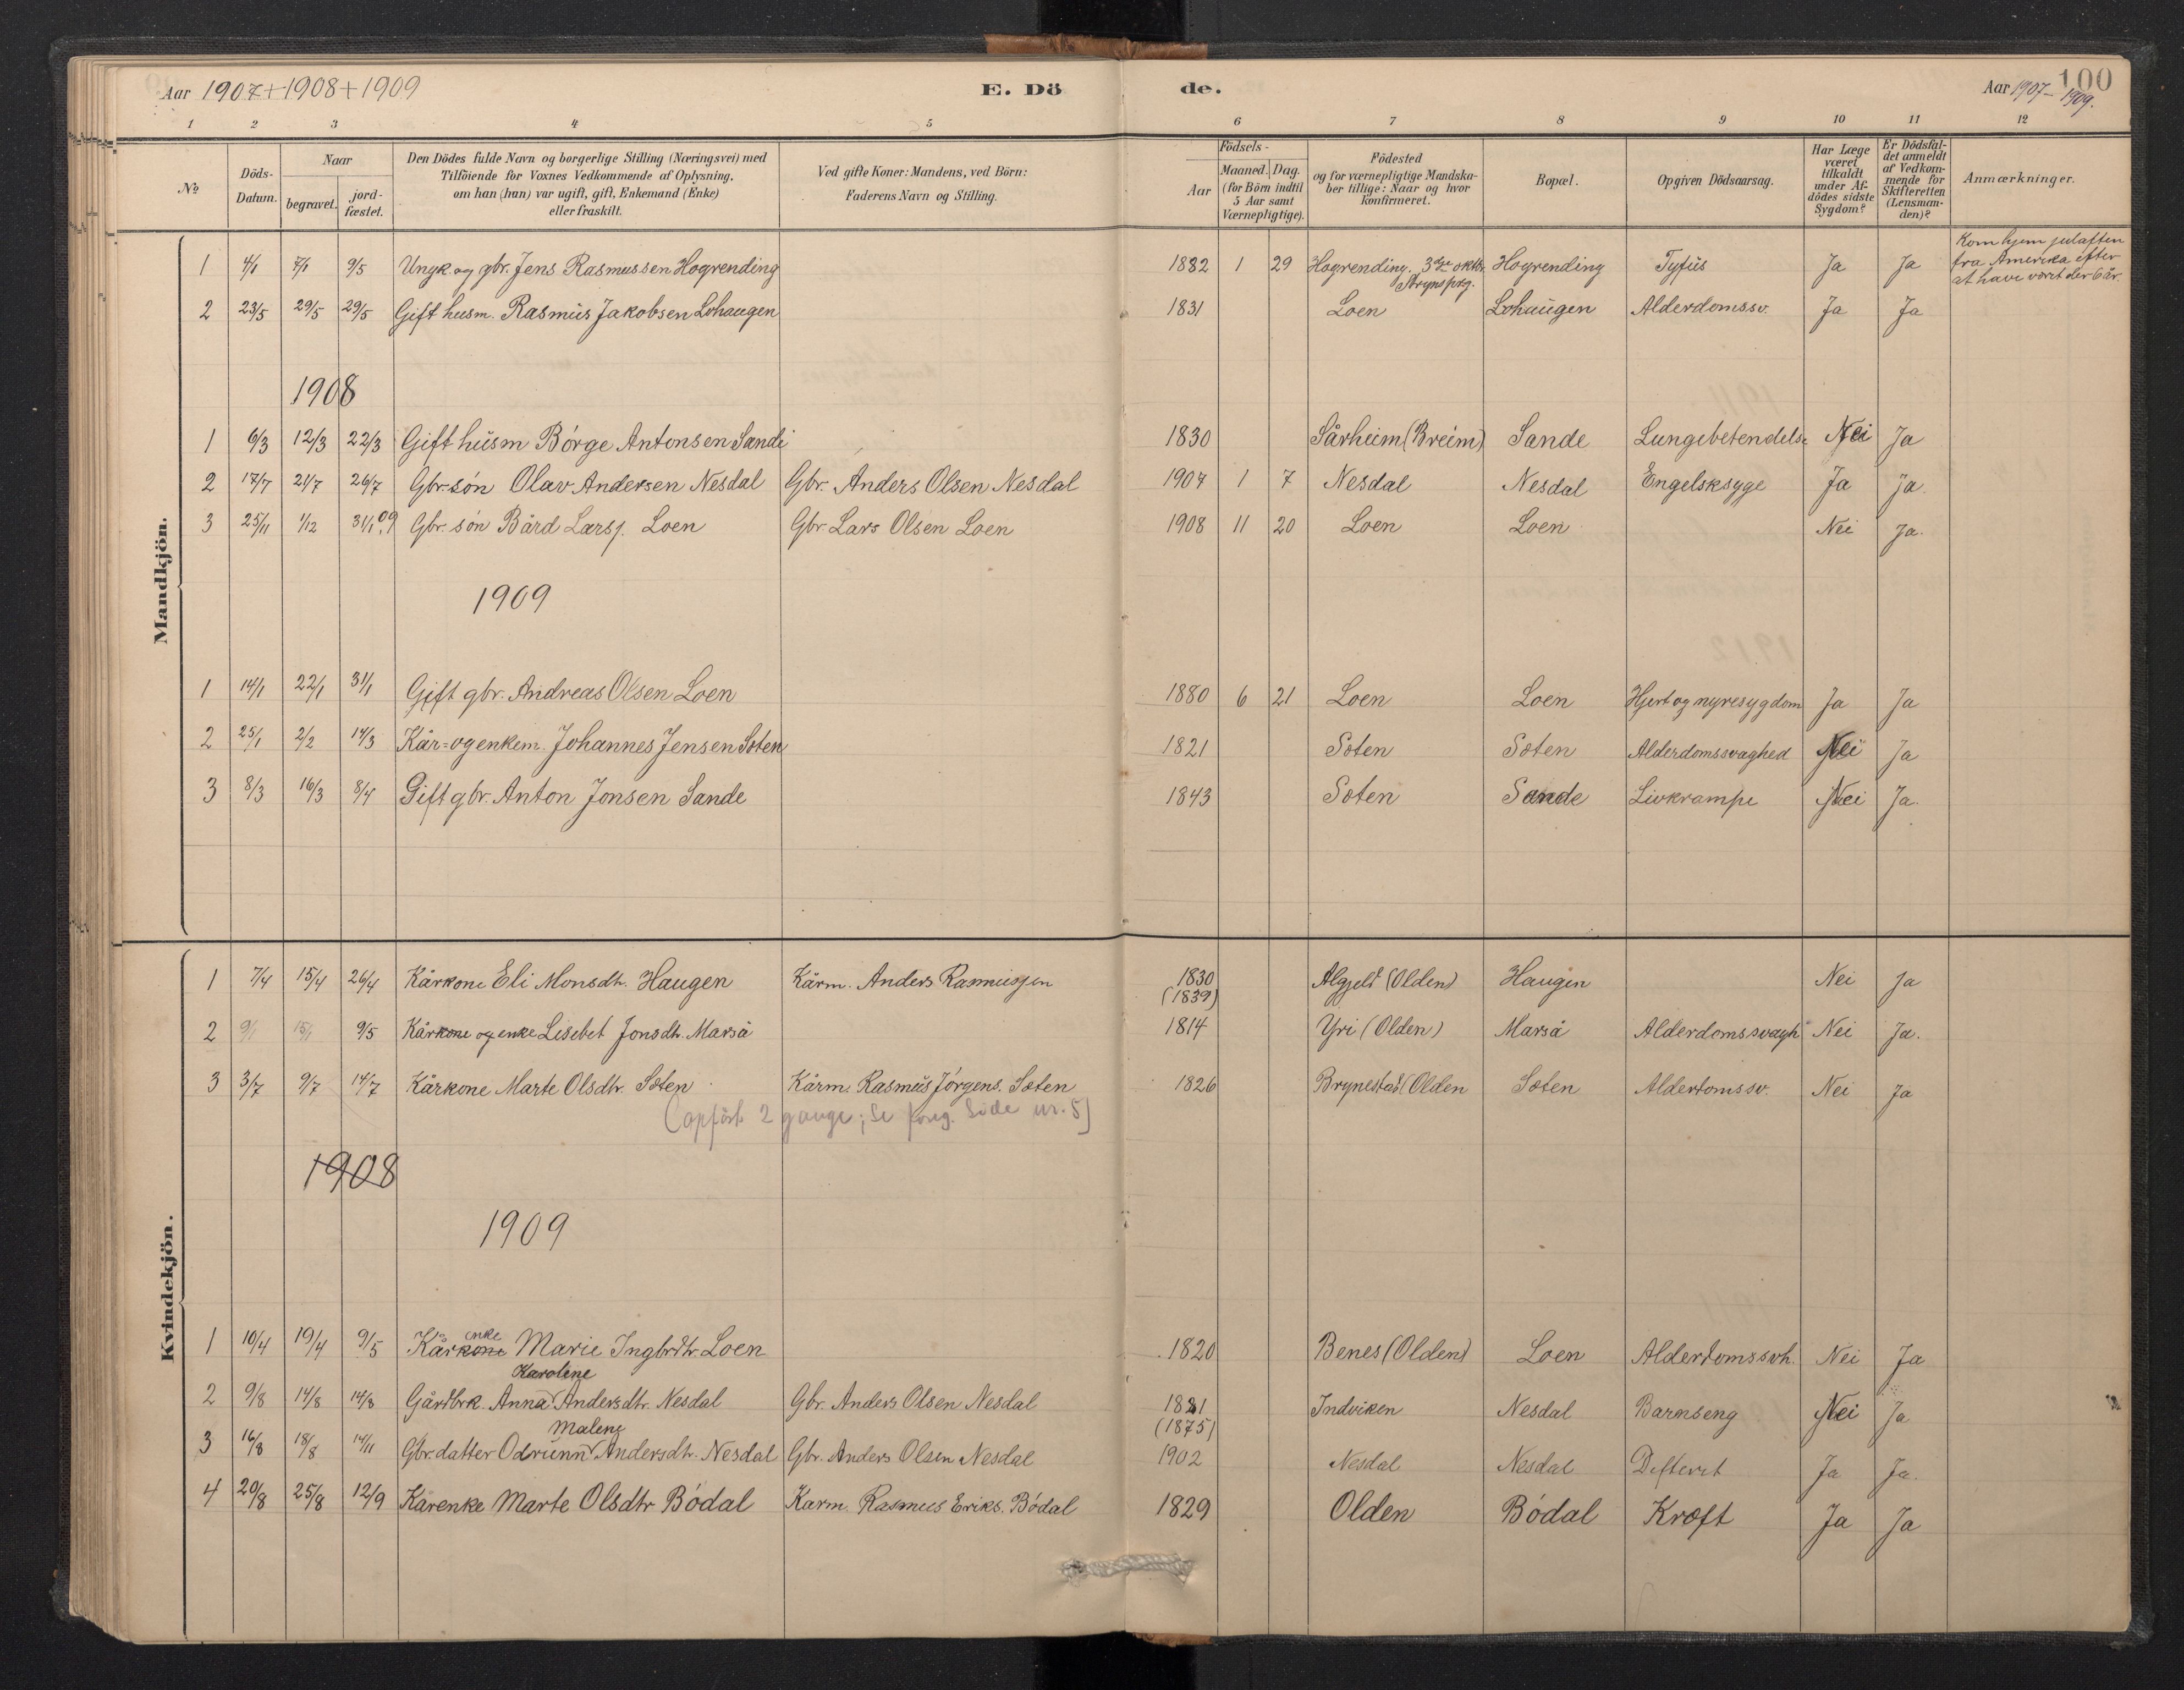 Aar 1907+1908+1909 E. Dö de. Aar 1907-1909. 100
1 2 3 4 5 6 7 8 9 10 11 12
No Döds-Datum. Naar begravet. jordfæstet. Den Dödes fulde Navn og borgerlige Stilling (Næringsvei) med Tilföiende for Voxnes Vedkommende af Oplysning, om han (hun) var ugift, gift, Enkemand (Enke) eller fraskilt. Ved gifte Koner: Mandens, ved Börn: Faderens Navn og Stilling. Födsels- Aar Maaned. Dag. (for Börn indtil 5 Aar samt Værnepligtige). Födested og for værnepligtige Mandskaber tillige: Naar og hvor konfirmeret. Bopæl. Opgiven Dödsaarsag. Har Læge været tilkaldt under Afdödes sidste Sygdom? Er Dödsfaldet anmeldt af Vedkommende for Skifteretten (Lensmanden)? Anmærkninger.
Mandkjön.
1 4/1 7/1 9/5 Ungk. og gbr. Jens Rasmussen Hogrending 1882 1 29 Hogrending. 3die oktbr. Strynsprg. Hogrending Tyfus Ja Ja Kom hjem julaften fra Amerika efter at have vært der 6 år.
2 23/5 29/5 29/5 Gift husm. Rasmus Jakobsen Lohaugen 1831 Loen Lohaugen Alderdomssv. Ja Ja
1908
1 6/3 12/3 22/3 Gift husm Börge Antonsen Sande 1830 Sårheim (Breim) Sande Lungebetendels. Nei Ja
2 17/7 21/7 26/7 Gbr. sön Olav Andersen Nesdal Gbr. Anders Olsen Nesdal 1907 1 7 Nesdal Nesdal Engelsksyge Ja Ja.
3 25/11 1/12 31/1 09 Gbr. sön Bård Larss. Loen Gbr. Lars Olsen Loen 1908 11 20 Loen Loen Nei Ja.
1909
1 14/1 22/1 31/1 Gift gbr. Andreas Olsen Loen 1880 6 21 Loen Loen Hjert og nyresygdom Ja Ja
2 25/1 2/2 14/3 Kår= og enkem. Johannes Jensen Sæten 1821 Sæten Sæten Alderdomssvaghed Nei Ja
3 8/3 16/3 8/4 Gift gbr. Anton Jonsen Sande 1843 Sæten Sande Livkrampe Nei Ja.
Kvindekjön.
1 7/4 15/4 26/4 Kårkone Eli Monsdtr. Haugen Kårm. Anders Rasmussen 1830 (1839) Algjeld (Olden) Haugen Nei Ja
2 9/5 Kårkone og enke Lisebet Jonsdtr. Marså 1814 Yri (Olden) Marså Alderdomssvagh. Nei Ja.
3 3/7 9/7 14/7 Kårkone Marte Olsdtr. Sæten Kårm. Rasmus Jörgens. Sæten 1826 Brynestad (Olden Sæten Alderdomssv. Nei Ja
(opfört 2 gange; se forrig. Side nr. 5)
1908
1909
1 10/4 19/4 9/5 Kårkone enke Marie Ingbrdtr. Loen 1820 Benes (Olden) Loen Alderdomssvh. Nei Ja
2 9/8 14/8 14/8 Gårdbrk. Anna Karoline Andersdtr. Nesdal Gbr. Anders Olsen Nesdal 1881 (1875) Indviken Nesdal Barnseng Nei Ja
3 16/8 18/8 14/11 Gbr. datter Odrunn Malene Andersdtr. Nesdal Gbr. Anders Olsen Nesdal 1902 Nesdal Nesdal Difterit Ja Ja.
4 20/8 25/8 12/9 Kårenke Marte Olsdtr Bödal Karm. Rasmus Eriks. Bödal 1829 Olden Bödal Kræft Ja Ja